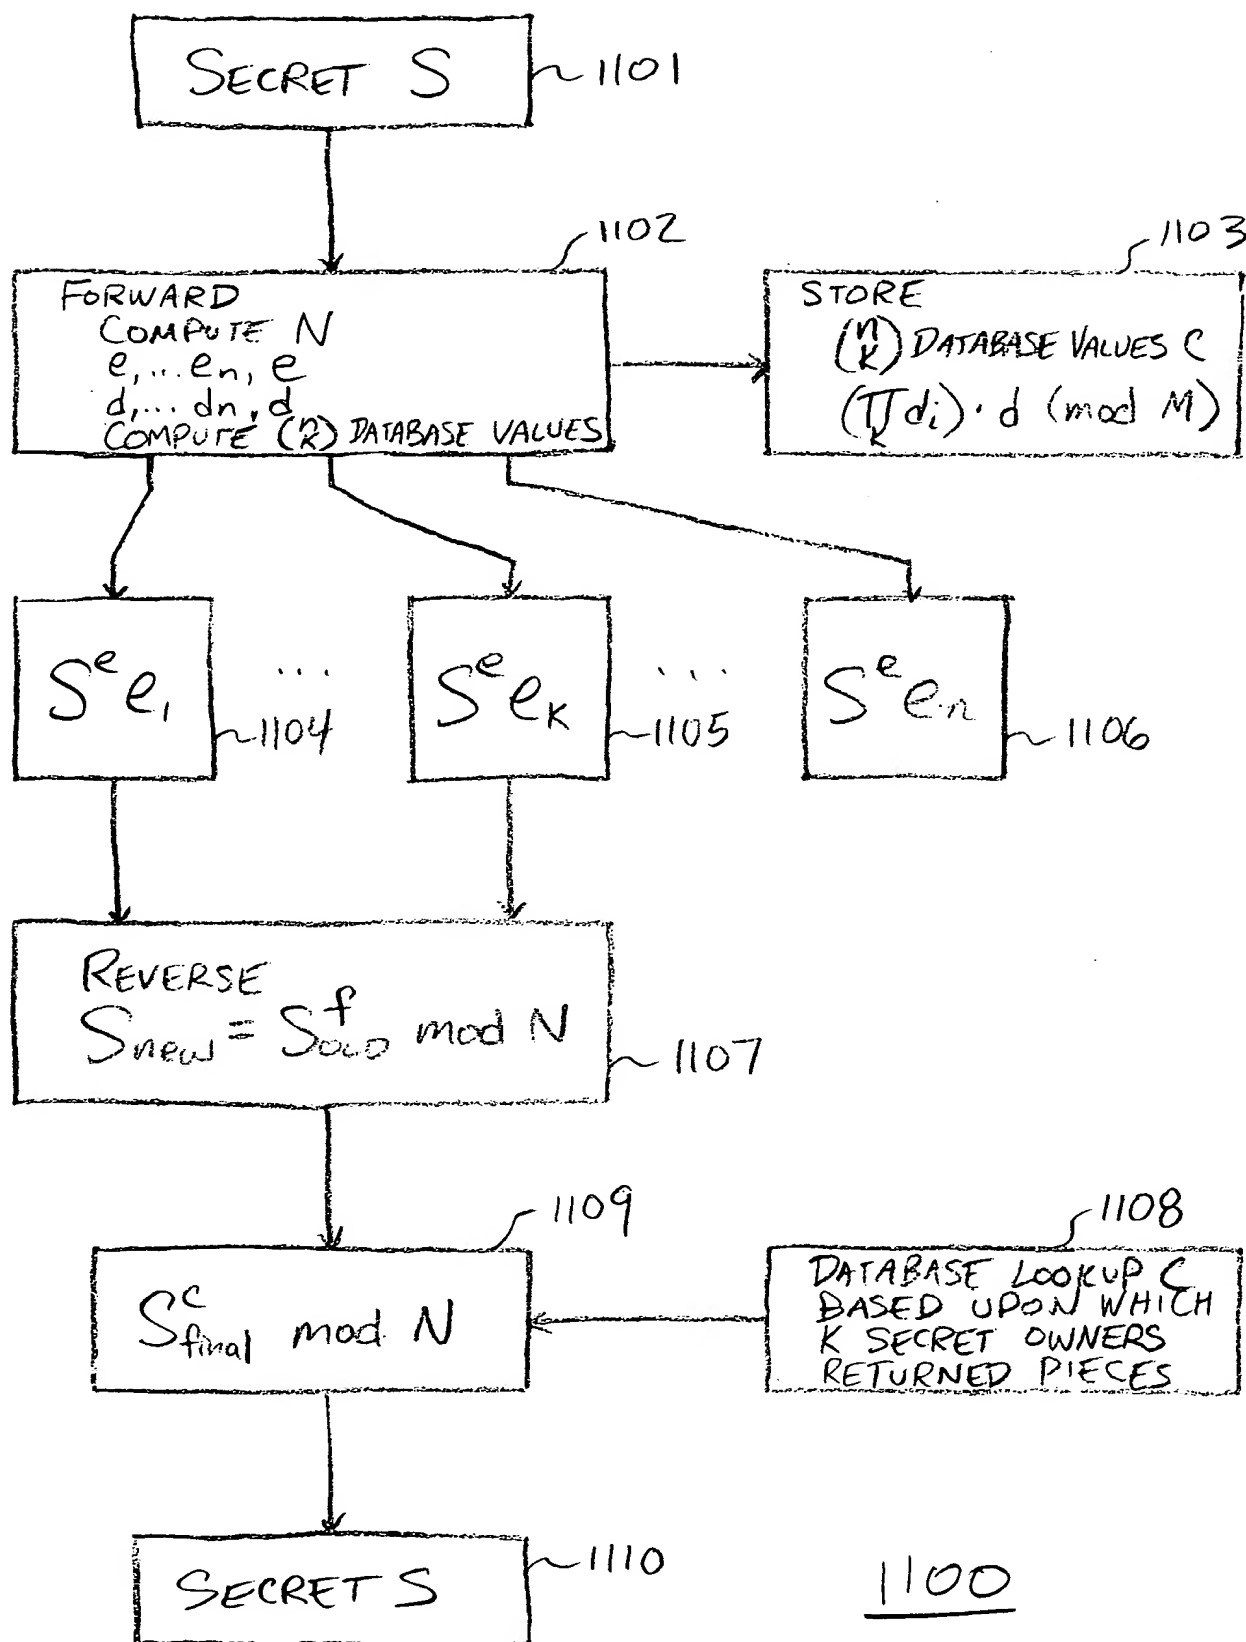 SECRET S
1101
1102
FORWARD
COMPUTE N
e, ... en, e
d, ... dn, d
COMPUTE (n k) DATABASE VALUES
1103
STORE
(n k) DATABASE VALUES C
(∏ k di) · d (mod M)
S^e e₁
1104
...
S^e e_K
1105
...
S^e e_n
1106
REVERSE
S_new = S_OLD^f mod N
1107
1109
S_final^c mod N
1108
DATABASE LOOKUP C
BASED UPON WHICH
K SECRET OWNERS
RETURNED PIECES
SECRET S
1110
1100